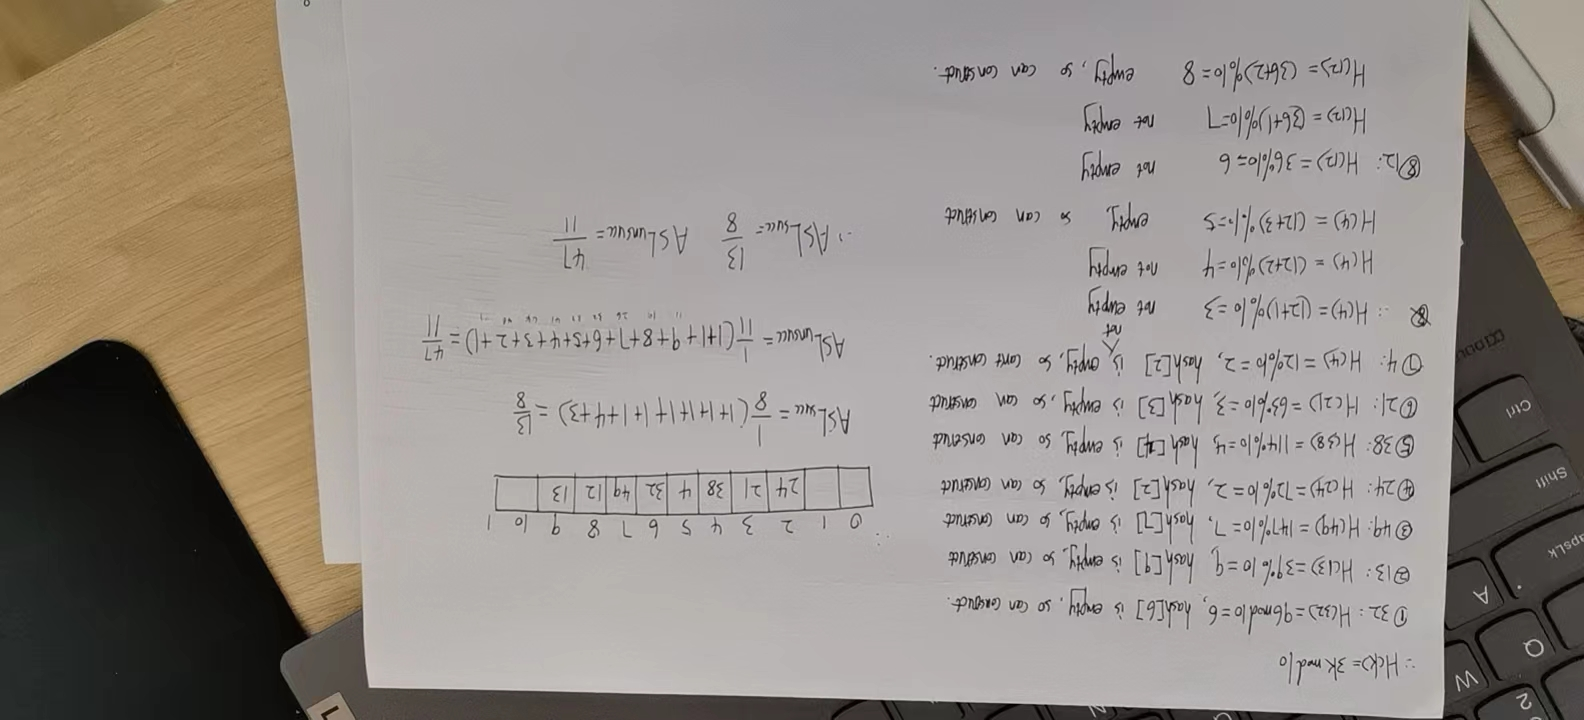 ∴ H(k)=3k mod 10
① 32: H(32)=96mod10=6, hash[6] is empty, so can construct.
② 13: H(13)=39%10=9, hash[9] is empty, so can construct
③ 49: H(49)=147%10=7, hash[7] is empty, so can construct
④ 24: H(24)=72%10=2, hash[2] is empty, so can construct
⑤ 38: H(38)=114%10=4, hash[4] is empty, so can construct
⑥ 21: H(21)=63%10=3, hash[3] is empty, so can construct
⑦ 4: H(4)=12%10=2, hash[2] is not empty, so can't construct.
∴ H(4)=(12+1)%10=3 not empty
H(4)=(12+2)%10=4 not empty
H(4)=(12+3)%10=5 empty, so can construct
⑧ 12: H(12)=36%10=6 not empty
H(12)=(36+1)%10=7 not empty
H(12)=(36+2)%10=8 empty, so can construct.
∴ 0 1 2 3 4 5 6 7 8 9 10
24 21 38 4 32 49 12 13
ASLsucc=1/8(1+1+1+1+1+1+4+3)=13/8
ASLunsucc=1/11(1+1+9+8+7+6+5+4+3+2+1)=47/11
∴ ASLsucc=13/8 ASLunsucc=47/11
2
W
Q
A
CapsLK
Shift
Ctrl
L